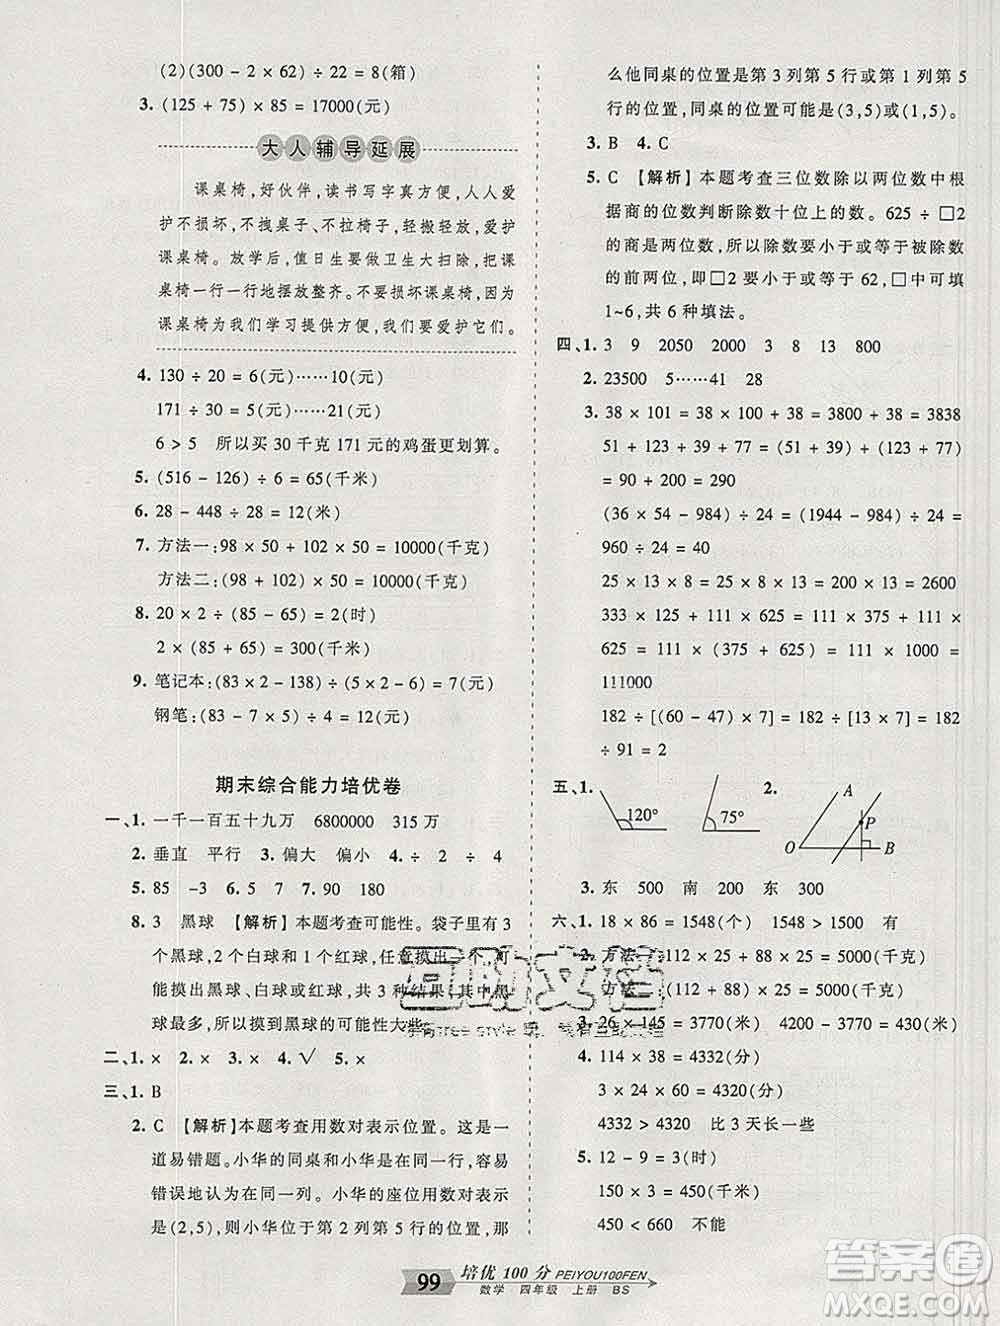 (2)(300 - 2 × 62) ÷ 22 = 8(箱)
3. (125 + 75) × 85 = 17000(元)
大人辅导延展
课桌椅,好伙伴,读书写字真方便,人人爱
护不损坏,不拽桌子、不拉椅子,轻搬轻放,爱
护课桌椅。放学后,值日生要做卫生大扫除,把课
桌椅一行一行地摆放整齐。不要损坏课桌椅,这些
课桌椅为我们学习提供方便,我们要爱护它们。
4. 130 ÷ 20 = 6(元)……10(元)
171 ÷ 30 = 5(元)……21(元)
6 > 5 所以买 30 千克 171 元的鸡蛋更划算。
5. (516 - 126) ÷ 6 = 65(千米)
6. 28 - 448 ÷ 28 = 12(秒)
7. 方法一:98 × 50 + 102 × 50 = 10000(千克)
方法二:(98 + 102) × 50 = 10000(千克)
8. 20 × 2 ÷ (85 - 65) = 2(时)
2 × (85 + 65) = 300(千米)
9. 笔记本:(83 × 2 - 138) ÷ (5 × 2 - 6) = 7(元)
钢笔:(83 - 7 × 5) ÷ 4 = 12(元)
期末综合能力培优卷
一、1. 一千一百五十九万 6800000 315 万
2. 垂直 平行 3. 偏大 偏小 4. ÷ 2 ÷ 4
5. 85 -3 6. 5 7 7. 90 180
8. 3 黑球 【解析】本题考查可能性。袋子里有 3
个黑球,2 个白球和 1 个红球,任意摸出一个,可
能摸出黑球、白球或红球,共 3 种结果,其中黑
球最多,所以摸到黑球的可能性大些。
二、1. × 2. × 3. × 4. √ 5. ×
三、1. B
2. C 【解析】本题考查用数对表示位置。这是一
道易错题。小华的同桌和小华在同一行,容易
错误地认为在同一列。小华的座位用数对表示
是(2,5),则小华位于第 2 列第 5 行的位置,那
么他同桌的位置是第 3 列第 5 行或第 1 列第 5
行的位置,同桌的位置可能是(3,5)或(1,5)。
3. B 4. C
5. C 【解析】本题考查三位数除以两位数中根
据商的位数判断除数十位上的数。625 ÷ □2
的商是两位数,所以除数要小于或等于被除数
的前两位,即□2 要小于或等于 62,□中可填
1~6,共 6 种填法。
四、1. 3 9 2050 2000 3 8 13 800
2. 23500 5……41 28
3. 38 × 101 = 38 × 100 + 38 = 3800 + 38 = 3838
51 + 123 + 39 + 77 = (51 + 39) + (123 + 77)
= 90 + 200 = 290
(36 × 54 - 984) ÷ 24 = (1944 - 984) ÷ 24 =
960 ÷ 24 = 40
25 × 13 × 8 = 25 × 8 × 13 = 200 × 13 = 2600
333 × 125 + 111 × 625 = 111 × 375 + 111 ×
625 = 111 × (375 + 625) = 111 × 1000 =
111000
182 ÷ [(60 - 47) × 7] = 182 ÷ [13 × 7] = 182
÷ 91 = 2
五、1. 120° 75° 2. A P O B
3. 东 500 南 200 东 300
六、1. 18 × 86 = 1548(个) 1548 > 1500 有
2. 方法一:112 × 25 + 88 × 25 = 5000(千克)
方法二:(112 + 88) × 25 = 5000(千克)
3. 26 × 145 = 3770(米) 4200 - 3770 = 430(米)
4. 114 × 38 = 4332(分)
3 × 24 × 60 = 4320(分)
4332 > 4320 比 3 天长一些
5. 12 - 9 = 3(时)
150 × 3 = 450(千米)
450 < 660 不能
99 培优 100 分 PEIYOU100FEN
数学 四年级 上册 BS
答案圈
MXQE.COM